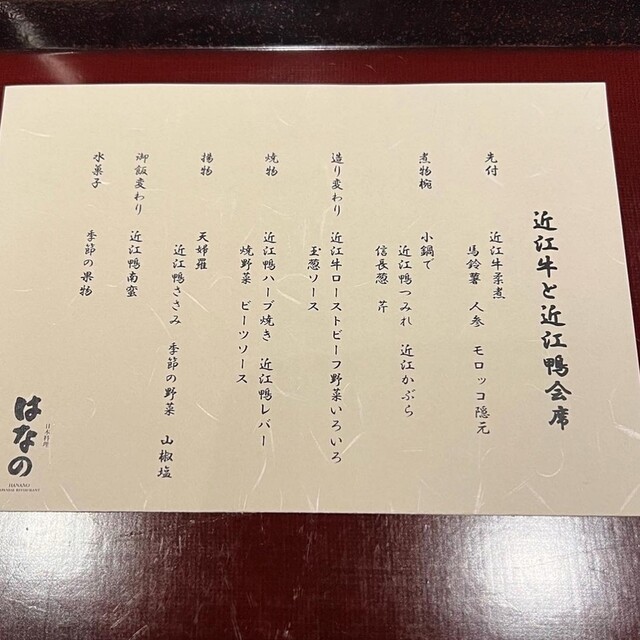 近江牛と近江鴨会席
先付
近江牛柔煮
馬鈴薯 人参 モロッコ隠元
煮物椀
小鍋で
近江鴨つみれ 近江かぶら
信長葱 芹
造り変わり
近江牛ローストビーフ野菜いろいろ
玉葱ソース
焼物
近江鴨ハーブ焼き 近江鴨レバー
焼野菜 ビーツソース
揚物
天婦羅
近江鴨ささみ 季節の野菜 山椒塩
御飯変わり
近江鴨南蛮
水菓子
季節の果物
日本料理
はなの
HANANO
JAPANESE RESTAURANT